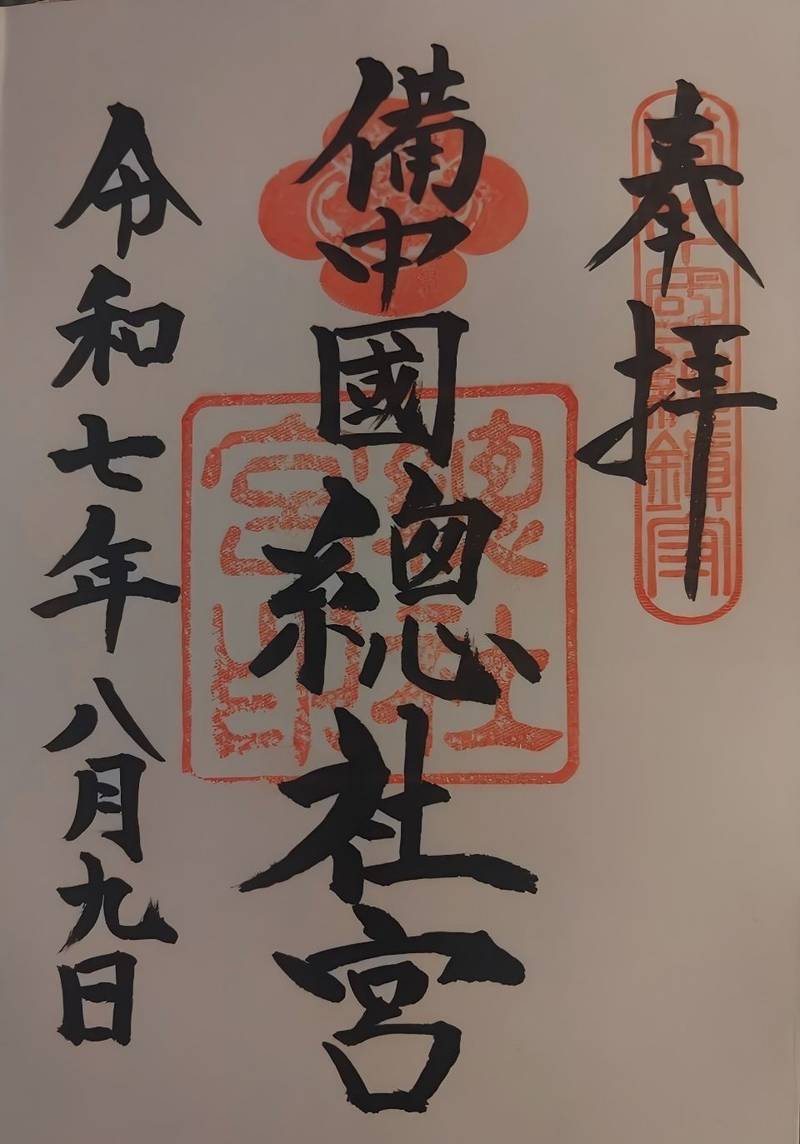 奉拝
備中國總社宮
總社
宮印
令和七年八月九日